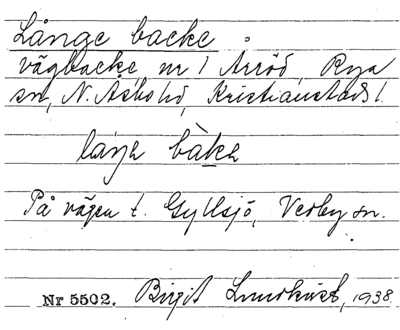 Långe backe :
vägbacke, nr 1 Arröd, Rya
sn, N. Åsbo hd, Kristianstads l.
På vägen t. Gyllsjö, Verby sn.
Nr 5502. Birgit Lundkvist, 1938.